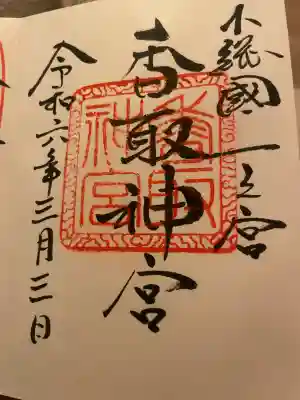 下総國一之宮
香取神宮
令和六年三月三日
香取
神宮